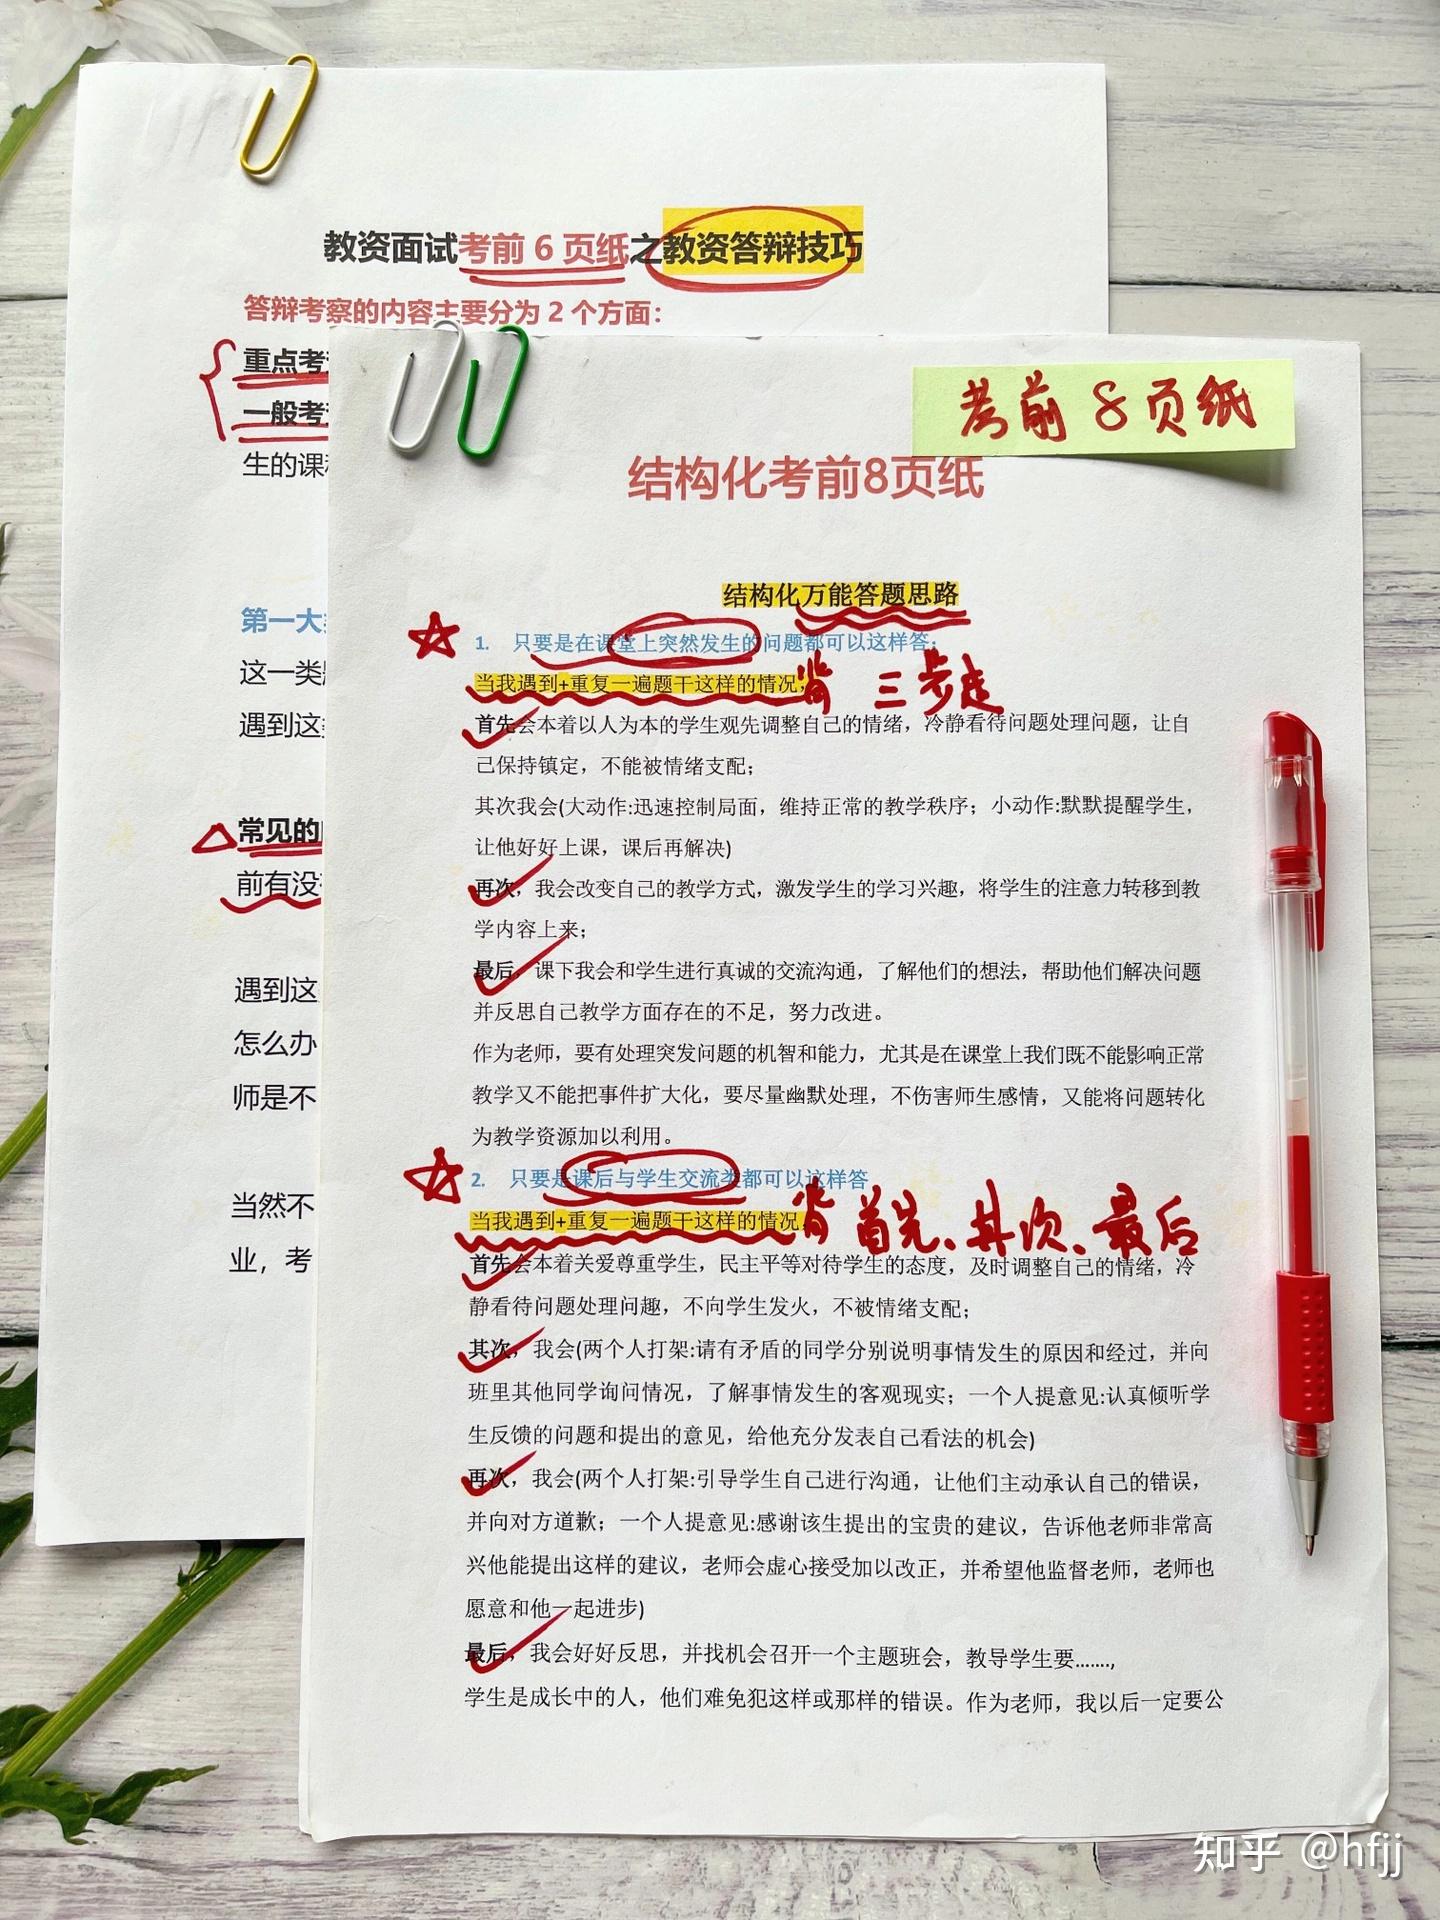 教资面试考前 6 页纸之教资答辩技巧
答辩考察的内容主要分为 2 个方面：
重点考
一般考
生的课
第一大
这一类
遇到这
常见的
前有没
遇到这
怎么办
师是不
当然不
业，考
考前 8 页纸
结构化考前8页纸
结构化万能答题思路
1. 只要是在课堂上突然发生的问题都可以这样答：
当我遇到+重复一遍题干这样的情况，
背 三步走
首先会本着以人为本的学生观先调整自己的情绪，冷静看待问题处理问题，让自
己保持镇定，不能被情绪支配；
其次我会(大动作:迅速控制局面，维持正常的教学秩序；小动作:默默提醒学生，
让他好好上课，课后再解决)
再次，我会改变自己的教学方式，激发学生的学习兴趣，将学生的注意力转移到教
学内容上来；
最后，课下我会和学生进行真诚的交流沟通，了解他们的想法，帮助他们解决问题
并反思自己教学方面存在的不足，努力改进。
作为老师，要有处理突发问题的机智和能力，尤其是在课堂上我们既不能影响正常
教学又不能把事件扩大化，要尽量幽默处理，不伤害师生感情，又能将问题转化
为教学资源加以利用。
2. 只要是课后与学生交流类都可以这样答
当我遇到+重复一遍题干这样的情况，
背 首先、其次、最后
首先会本着关爱尊重学生，民主平等对待学生的态度，及时调整自己的情绪，冷
静看待问题处理问趣，不向学生发火，不被情绪支配；
其次，我会(两个人打架:请有矛盾的同学分别说明事情发生的原因和经过，并向
班里其他同学询问情况，了解事情发生的客观现实；一个人提意见:认真倾听学
生反馈的问题和提出的意见，给他充分发表自己看法的机会)
再次，我会(两个人打架:引导学生自己进行沟通，让他们主动承认自己的错误，
并向对方道歉；一个人提意见:感谢该生提出的宝贵的建议，告诉他老师非常高
兴他能提出这样的建议，老师会虚心接受加以改正，并希望他监督老师，老师也
愿意和他一起进步)
最后，我会好好反思，并找机会召开一个主题班会，教导学生要……，
学生是成长中的人，他们难免犯这样或那样的错误。作为老师，我以后一定要公
知乎 @hfjj